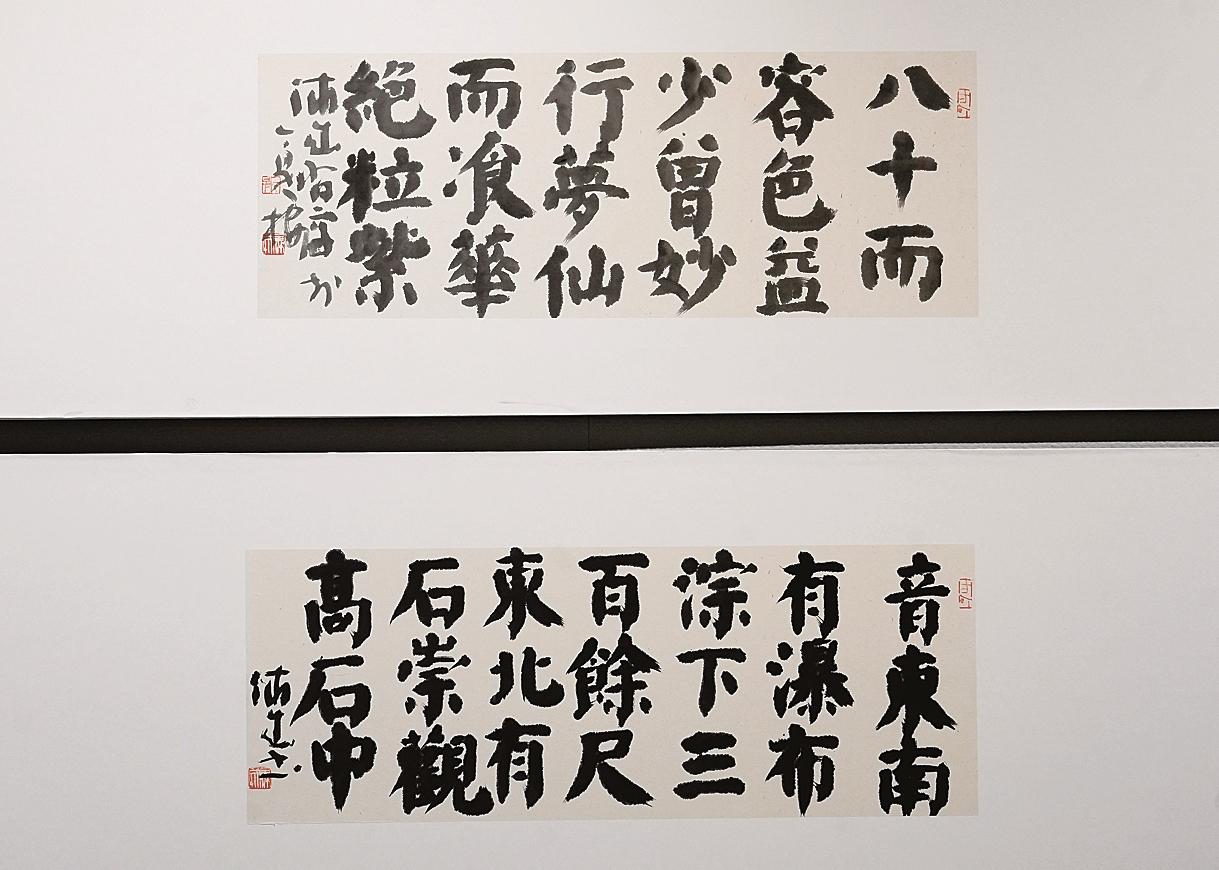 八十而
容色益
少曾妙
行夢仙
而飡華
絕粒紫
音東南
有瀑布
淙下三
百餘尺
東北有
石崇觀
高石中